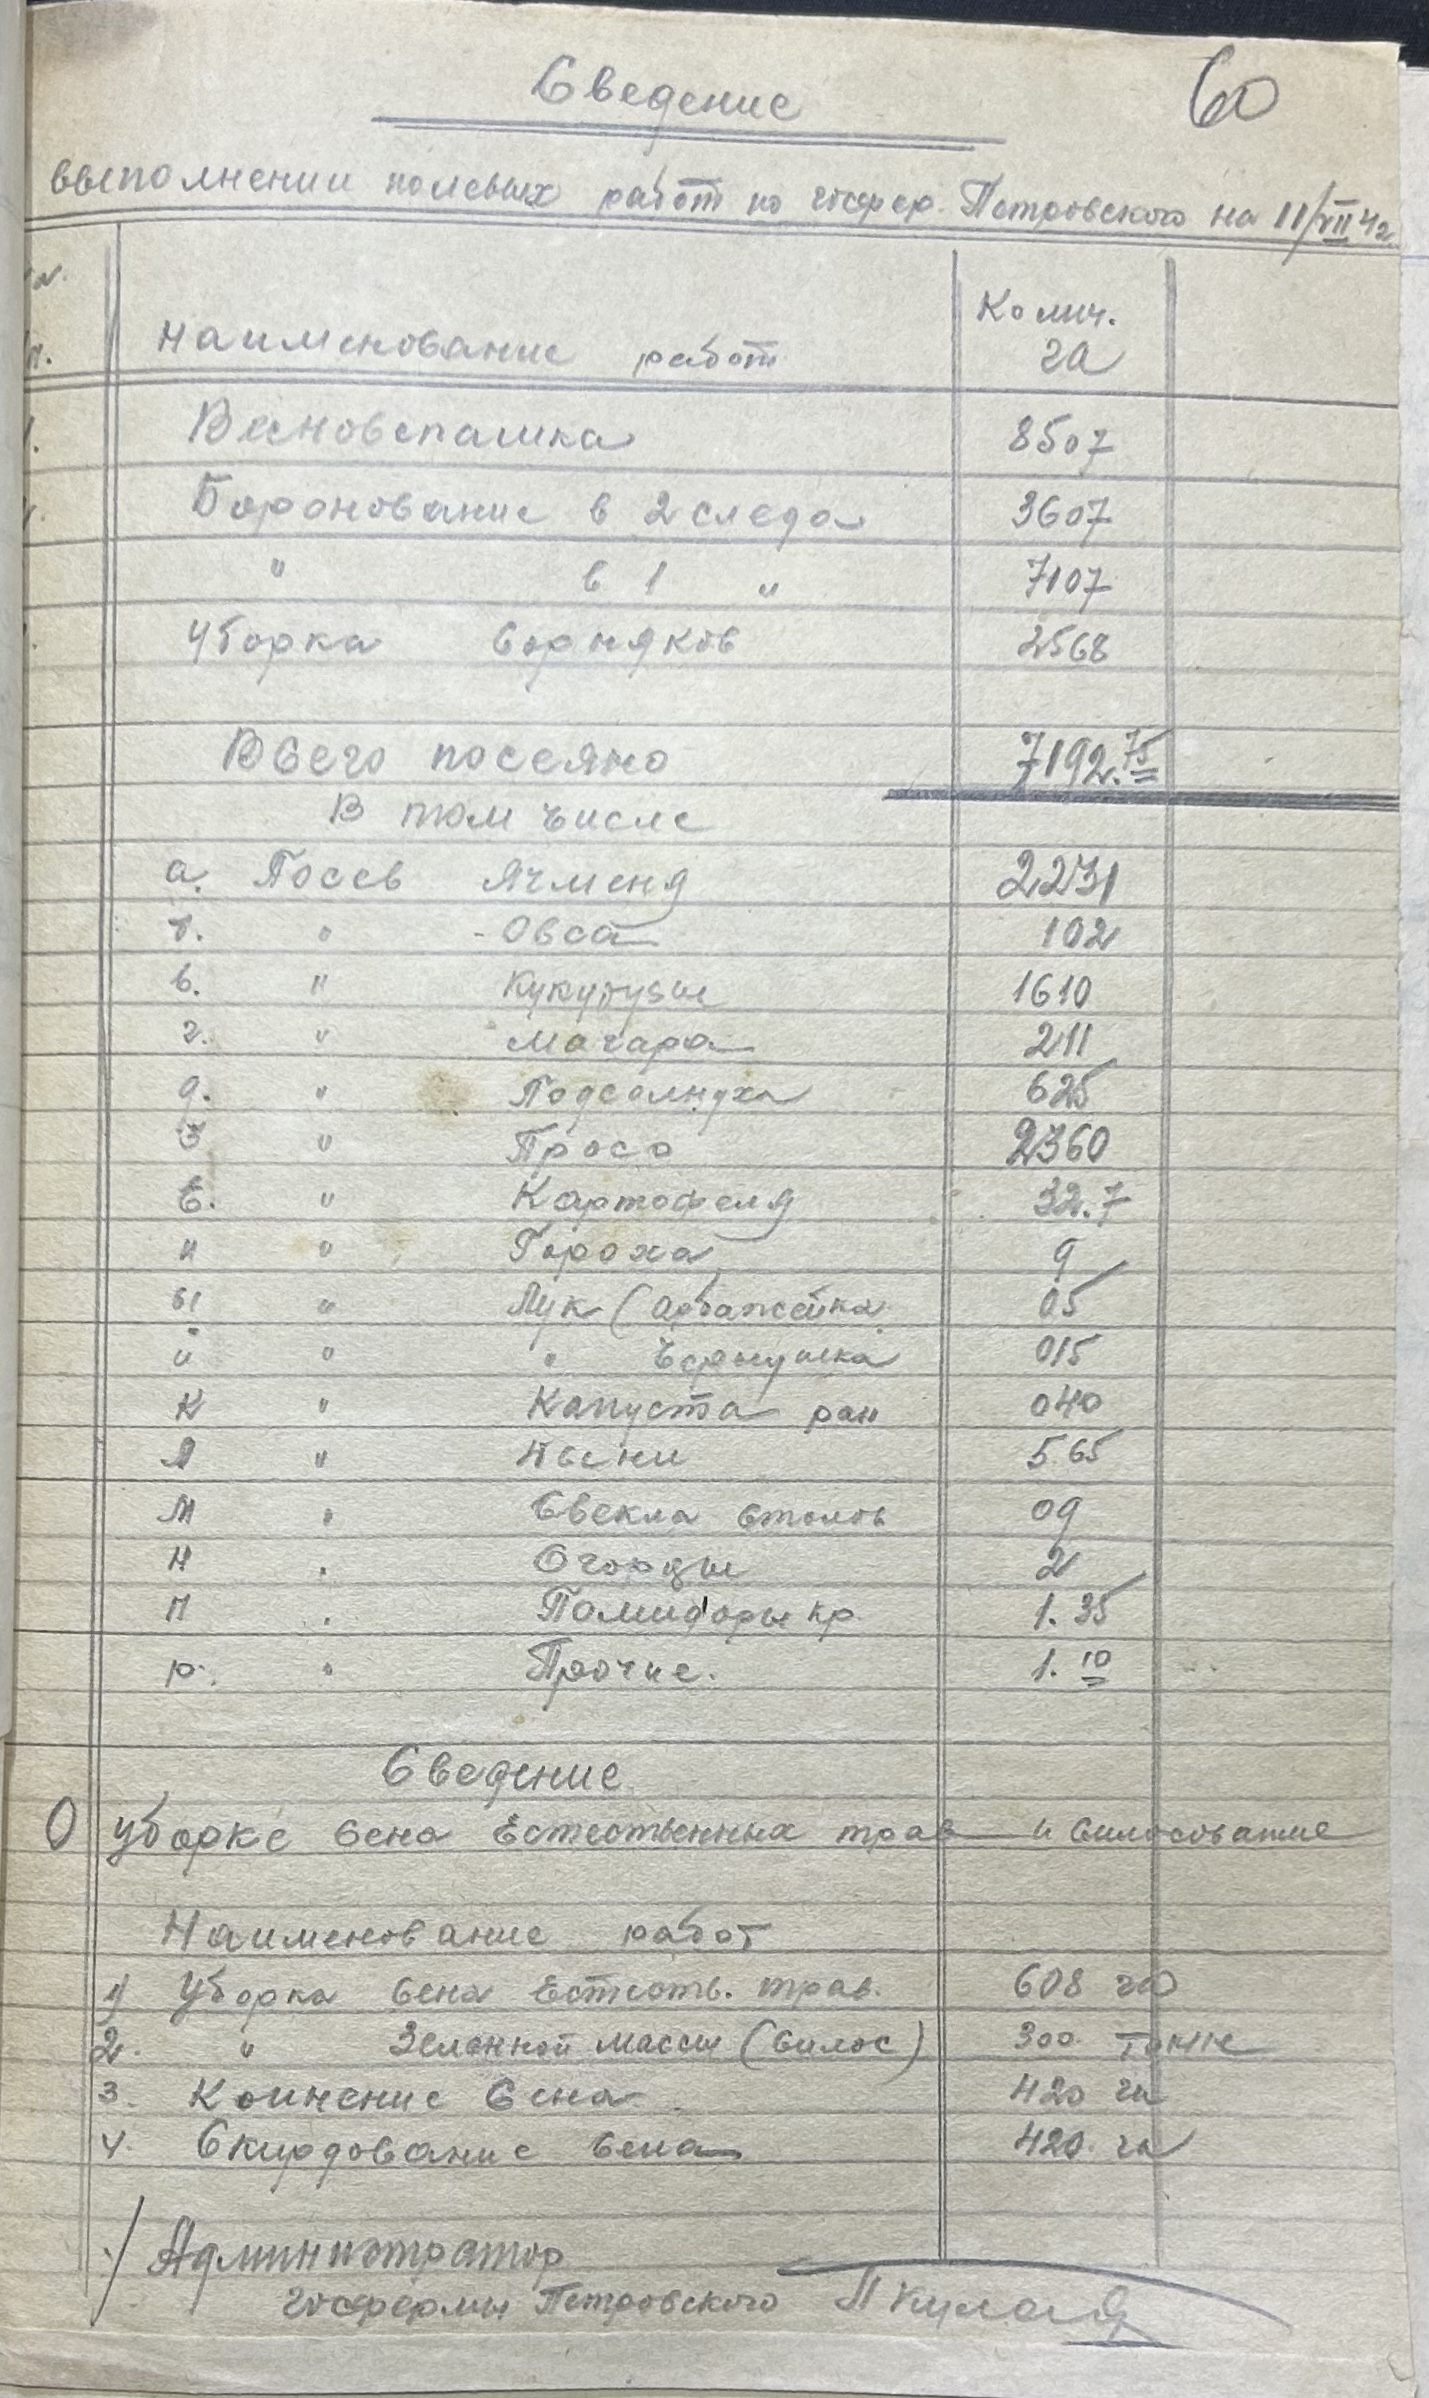 60
Сведение
выполнении полевых работ по госфер. Петровского на 11/VII 42
Наименование работ Колич. га
Весновспашка 8507
Боронование в 2 следа 3607
" в 1 " 7107
Уборка сорняков 2568
Всего посеяно 7192.75
В том числе
а. Посев Ячменя 2231
б. " Овса 102
в. " Кукурузы 1610
г. " Могара 211
д. " Подсолнуха 625
З " Просо 2360
Е. " Картофеля 32.7
и " Гороха 9
ы " Лук (арбажейка 05
и " " Чернушка 015
К " Капуста ран 040
Л " 5.65
М " Свекла столов 09
Н " Огорцы 2
П " Помидоры кр 1.35
р. " Прочие. 1.10
Сведение
О уборке сена Естественных трав и силосование
Наименование работ
1) Уборка сена Естеств. трав. 608 га
2. " Зеленной массы (силос) 300 тонн
3. Копнение Сена 420 га
4. Скирдование сена 420 га
Администратор
госфермы Петровского